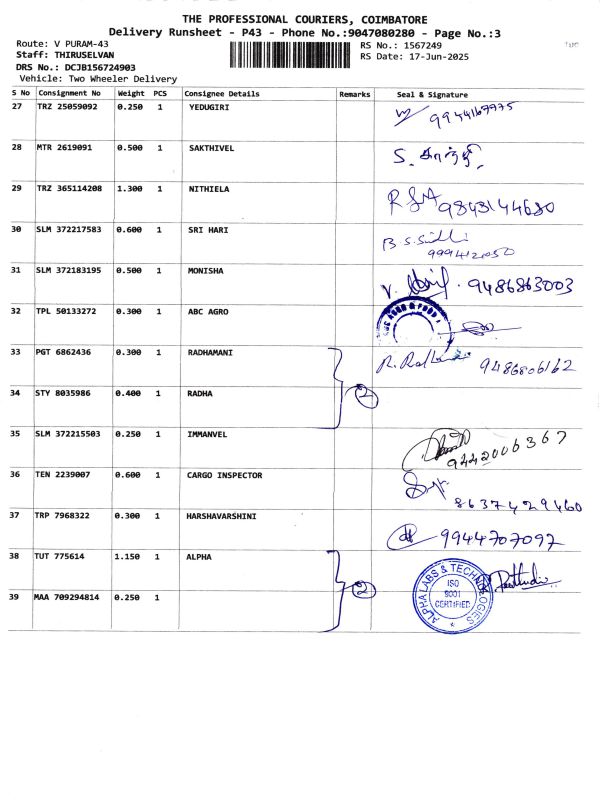 THE PROFESSIONAL COURIERS, COIMBATORE
Delivery Runsheet - P43 - Phone No.:9047080280 - Page No.:3
Route: V PURAM-43 RS No.: 1567249
Staff: THIRUSELVAN RS Date: 17-Jun-2025
DRS No.: DCJB156724903
Vehicle: Two Wheeler Delivery
S No Consignment No Weight PCS Consignee Details Remarks Seal & Signature
27 TRZ 25059092 0.250 1 YEDUGIRI 9944169975
28 MTR 2619091 0.500 1 SAKTHIVEL
29 TRZ 365114208 1.300 1 NITHIELA 9843144680
30 SLM 372217583 0.600 1 SRI HARI
9994121050
31 SLM 372183195 0.500 1 MONISHA 9486863003
32 TPL 50133272 0.300 1 ABC AGRO
33 PGT 6862436 0.300 1 RADHAMANI 9486806162
34 STY 8035986 0.400 1 RADHA 2
35 SLM 372215503 0.250 1 IMMANVEL 9442006367
36 TEN 2239007 0.600 1 CARGO INSPECTOR
8637429460
37 TRP 7968322 0.300 1 HARSHAVARSHINI 9944707097
38 TUT 775614 1.150 1 ALPHA 2 ALPHA LABS & TECHNOLOGIES
ISO
9001
CERTIFIED
39 MAA 709294814 0.250 1